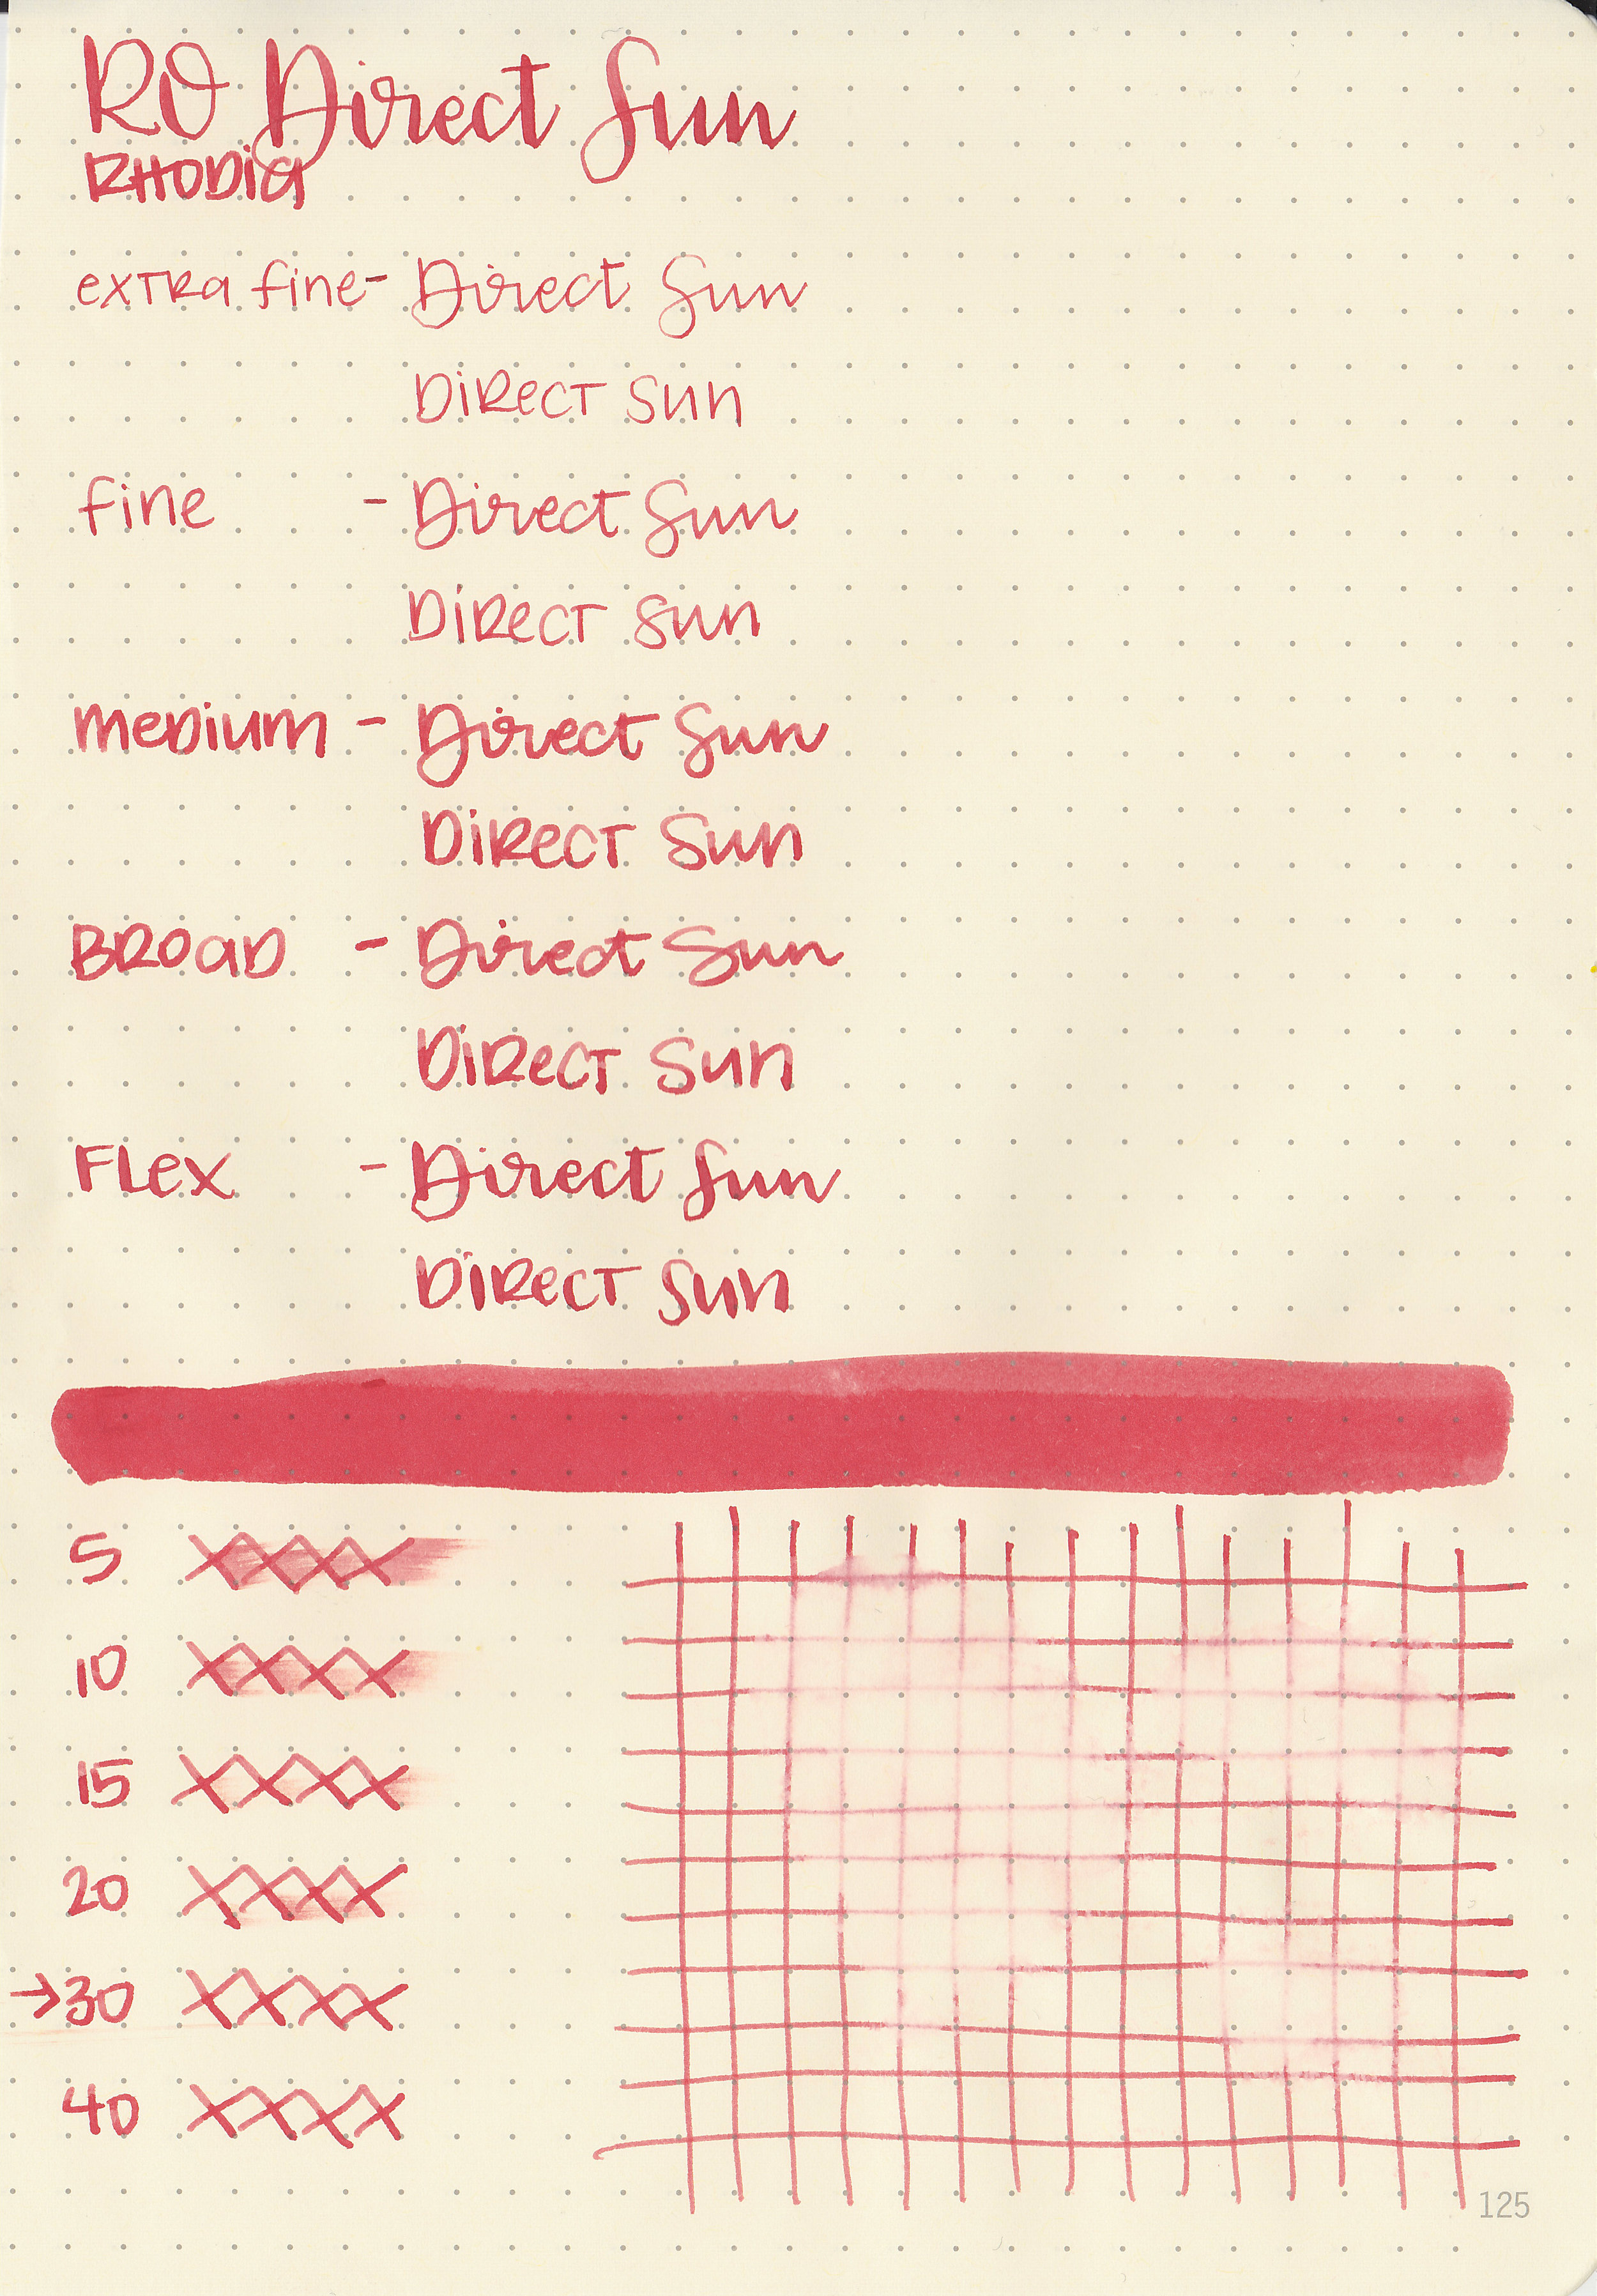 RO Direct Sun
RHODIa
exTRa fine- Direct Sun
DiRecT Sun
fine - Direct Sun
DiRecT Sun
meDium - Direct Sun
DiRecT Sun
BROaD - Direct Sun
DiRecT Sun
FLex - Direct Sun
DiRecT Sun
5 XXXX
10 XXXX
15 XXXX
20 XXXX
→30 XXXX
40 XXXX
125